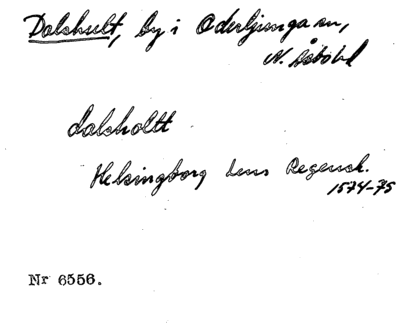 Dalshult, by i Oderljunga sn,
N. Åsbo hd
dalsholtt
Helsingborg Lens Regensk.
1574-75
Nr 6556.